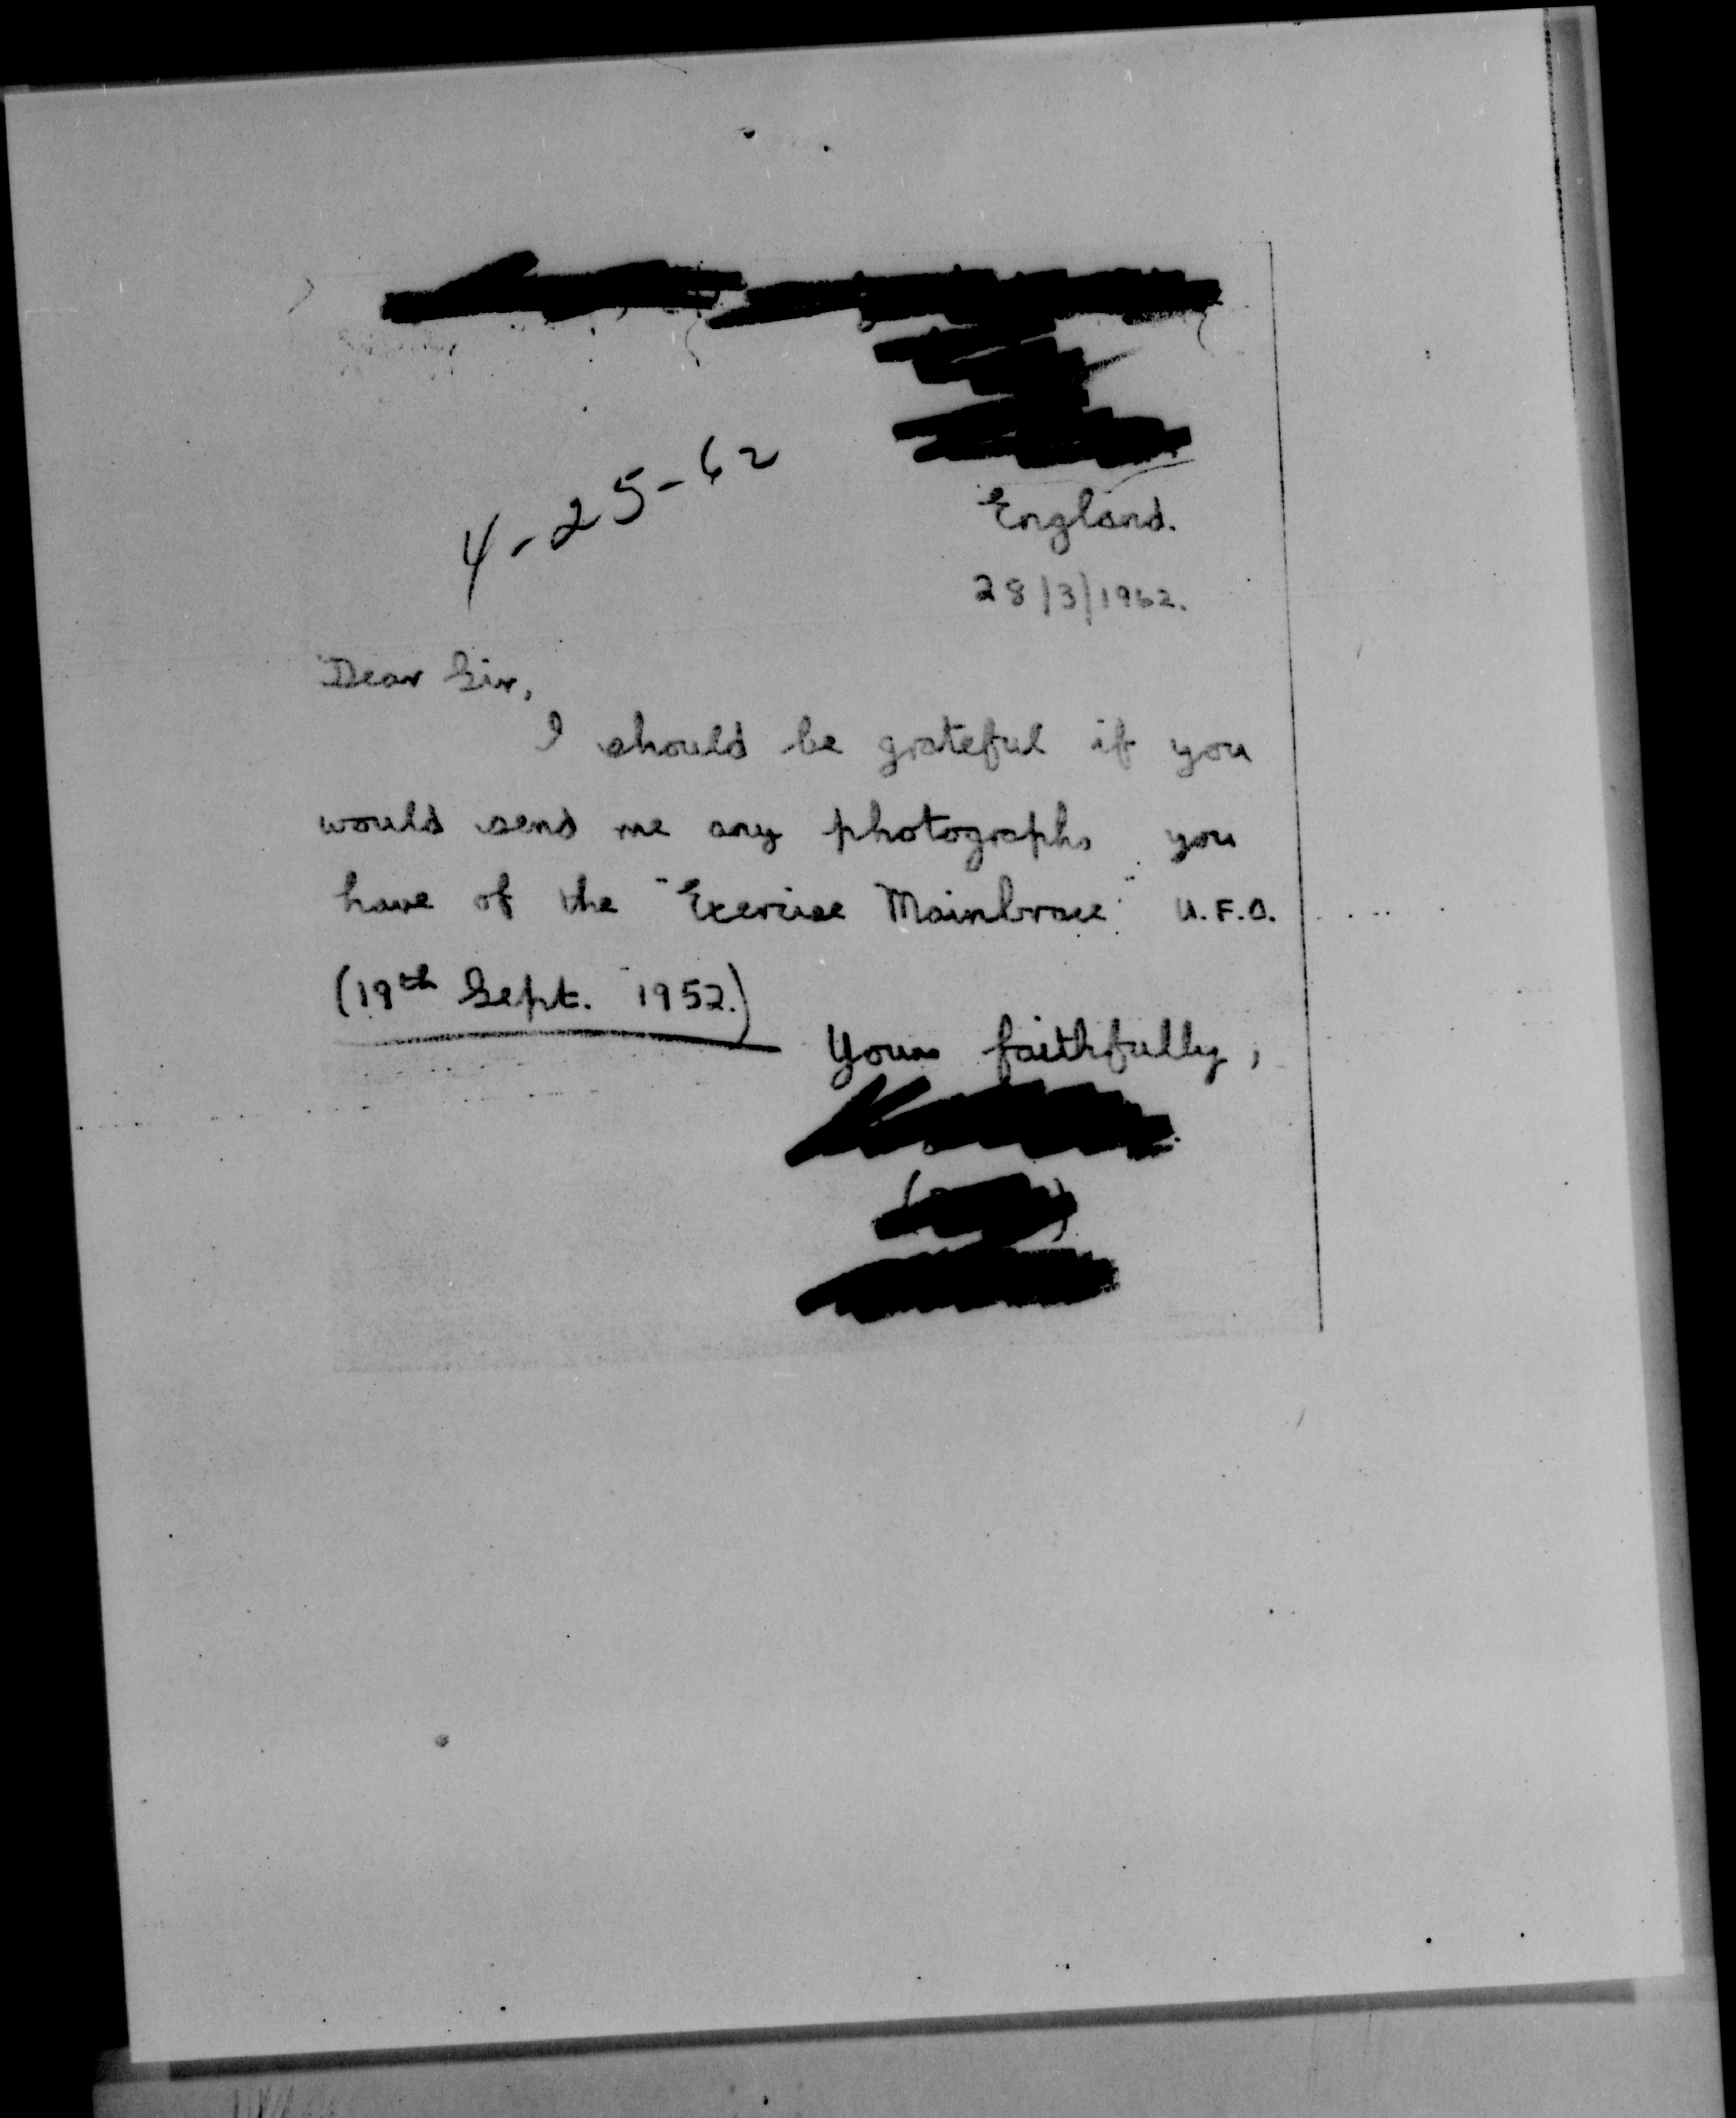 England.
4-25-62
28/3/1962.
Dear Sir,
I should be grateful if you
would send me any photographs you
have of the "Exercise Mainbrace" U.F.O.
(19th Sept. 1952.)
Yours faithfully,